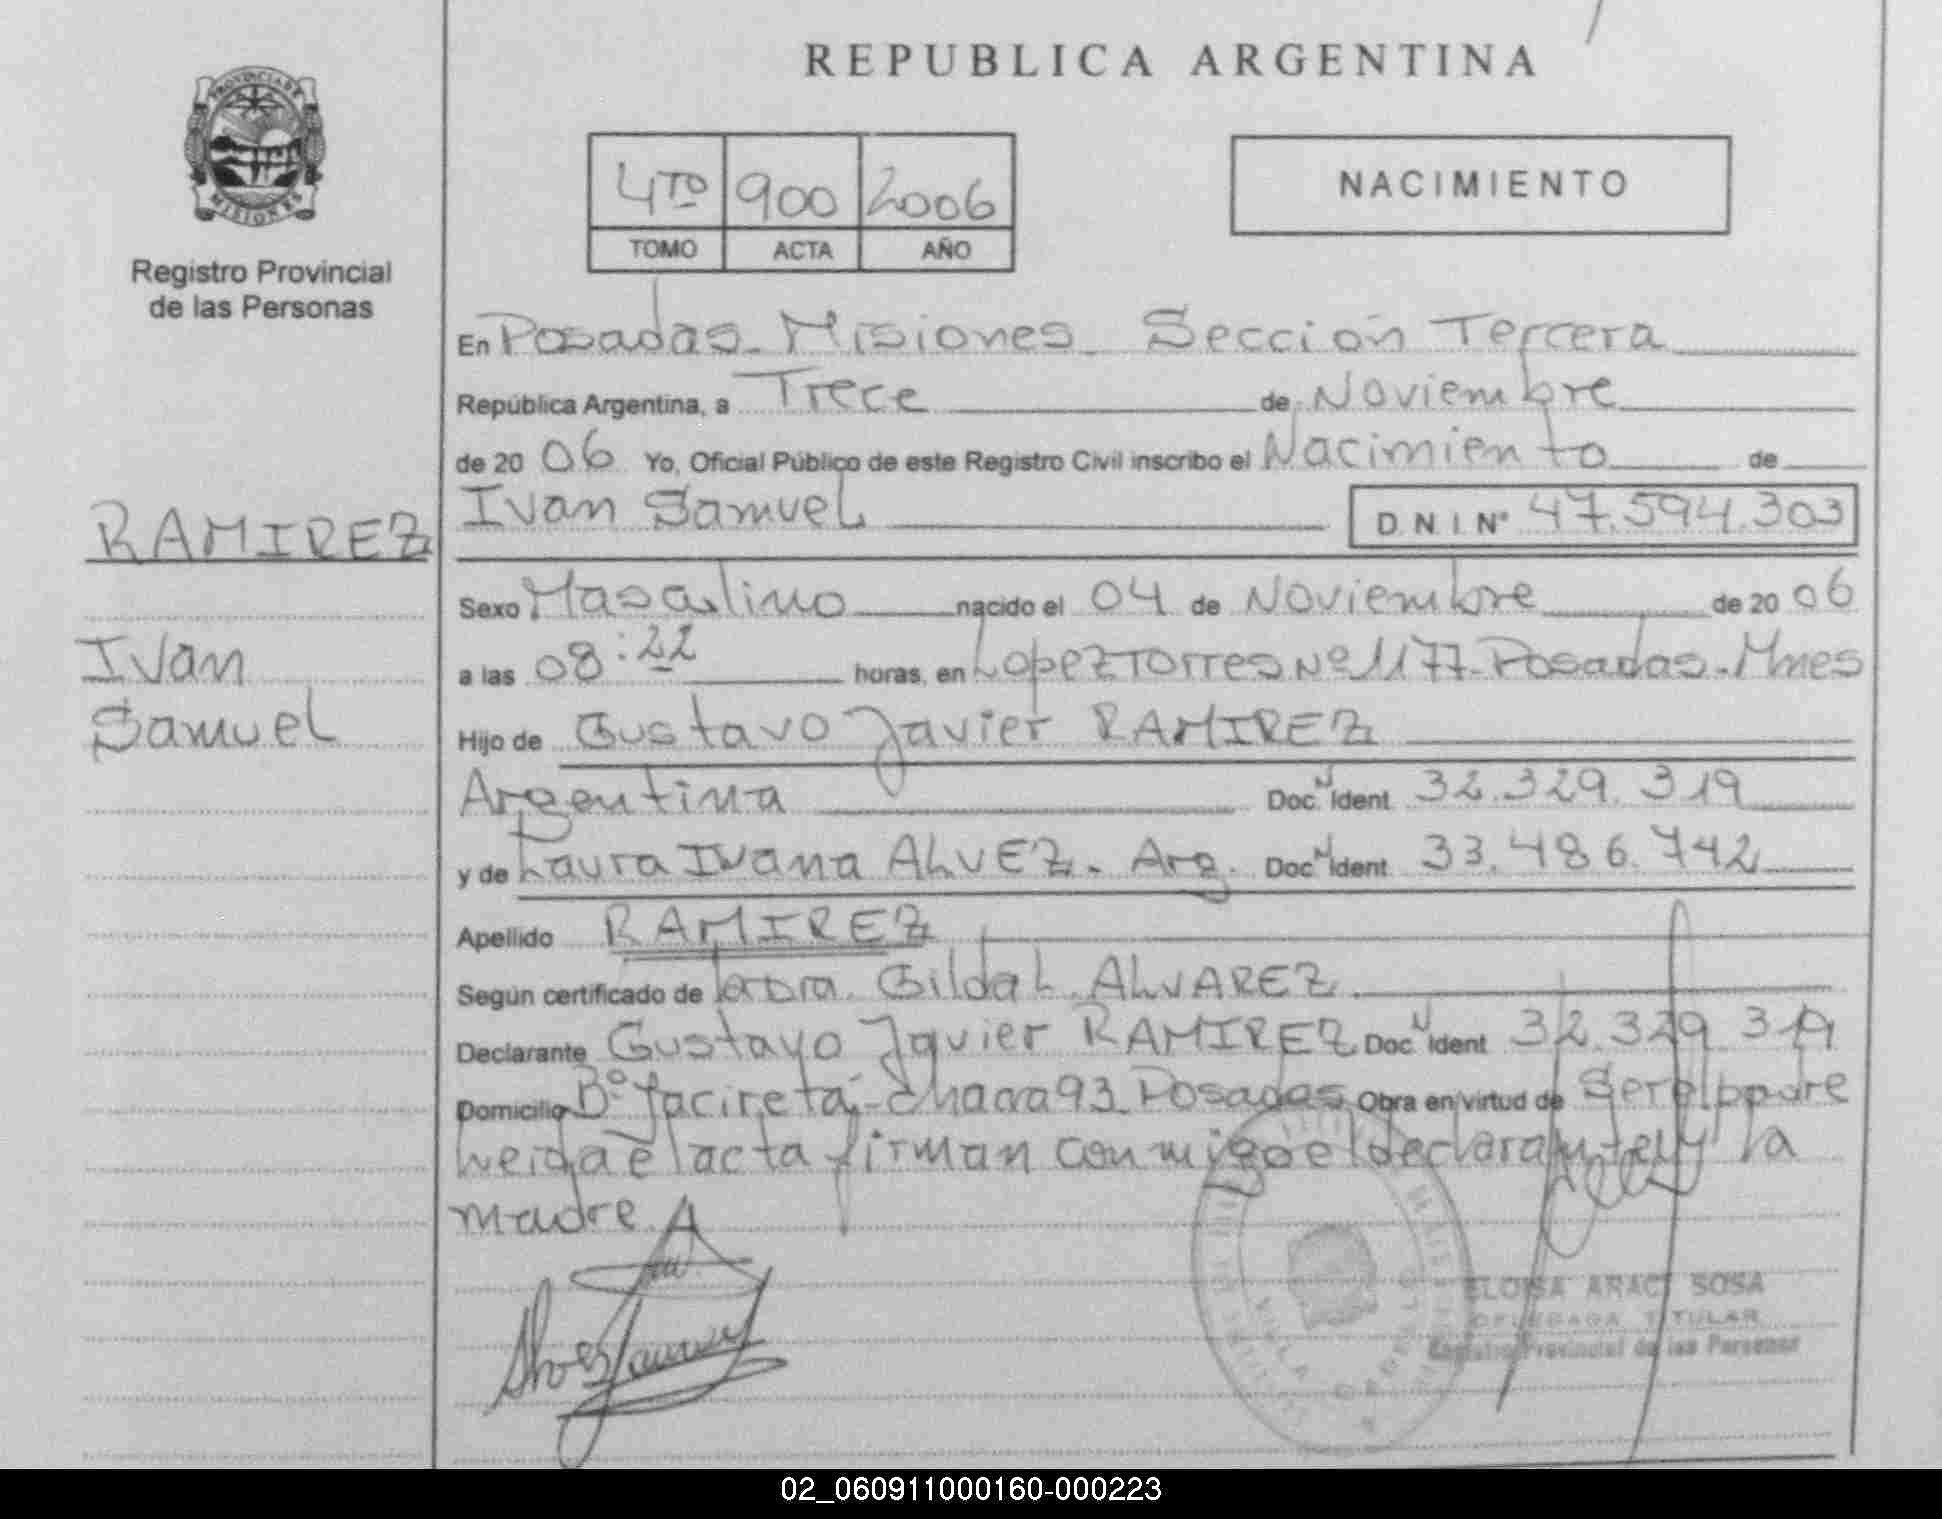 REPUBLICA ARGENTINA
PROVINCIA DE
MISIONES
Registro Provincial
de las Personas
4TO 900 2006
TOMO ACTA AÑO
NACIMIENTO
En Posadas - Misiones - Sección Tercera
República Argentina, a Trece de Noviembre
de 20 06 Yo, Oficial Público de este Registro Civil inscribo el Nacimiento de
Ivan Samuel D.N.I. N° 47.594.303
RAMIREZ
Ivan
Samuel
Sexo Masculino nacido el 04 de Noviembre de 20 06
a las 08:22 horas, en Lopez Torres Nº 1177 - Posadas - Mnes
Hijo de Gustavo Javier RAMIREZ
Argentina Doc. N Ident 32.329.319
y de Laura Ivana ALVEZ - Arg. Doc. N Ident 33.486.742
Apellido RAMIREZ
Según certificado de la Dra. Gilda L. ALVAREZ
Declarante Gustavo Javier RAMIREZ Doc. N Ident 32.329.319
Domicilio Bº Yacireta - Chacra 93 Posadas Obra en virtud de Ser el padre
Leida el acta firman conmigo el declarante y la
madre.
ELOISA ARACI SOSA
DELEGADA TITULAR
Registro Provincial de las Personas
02_060911000160-000223